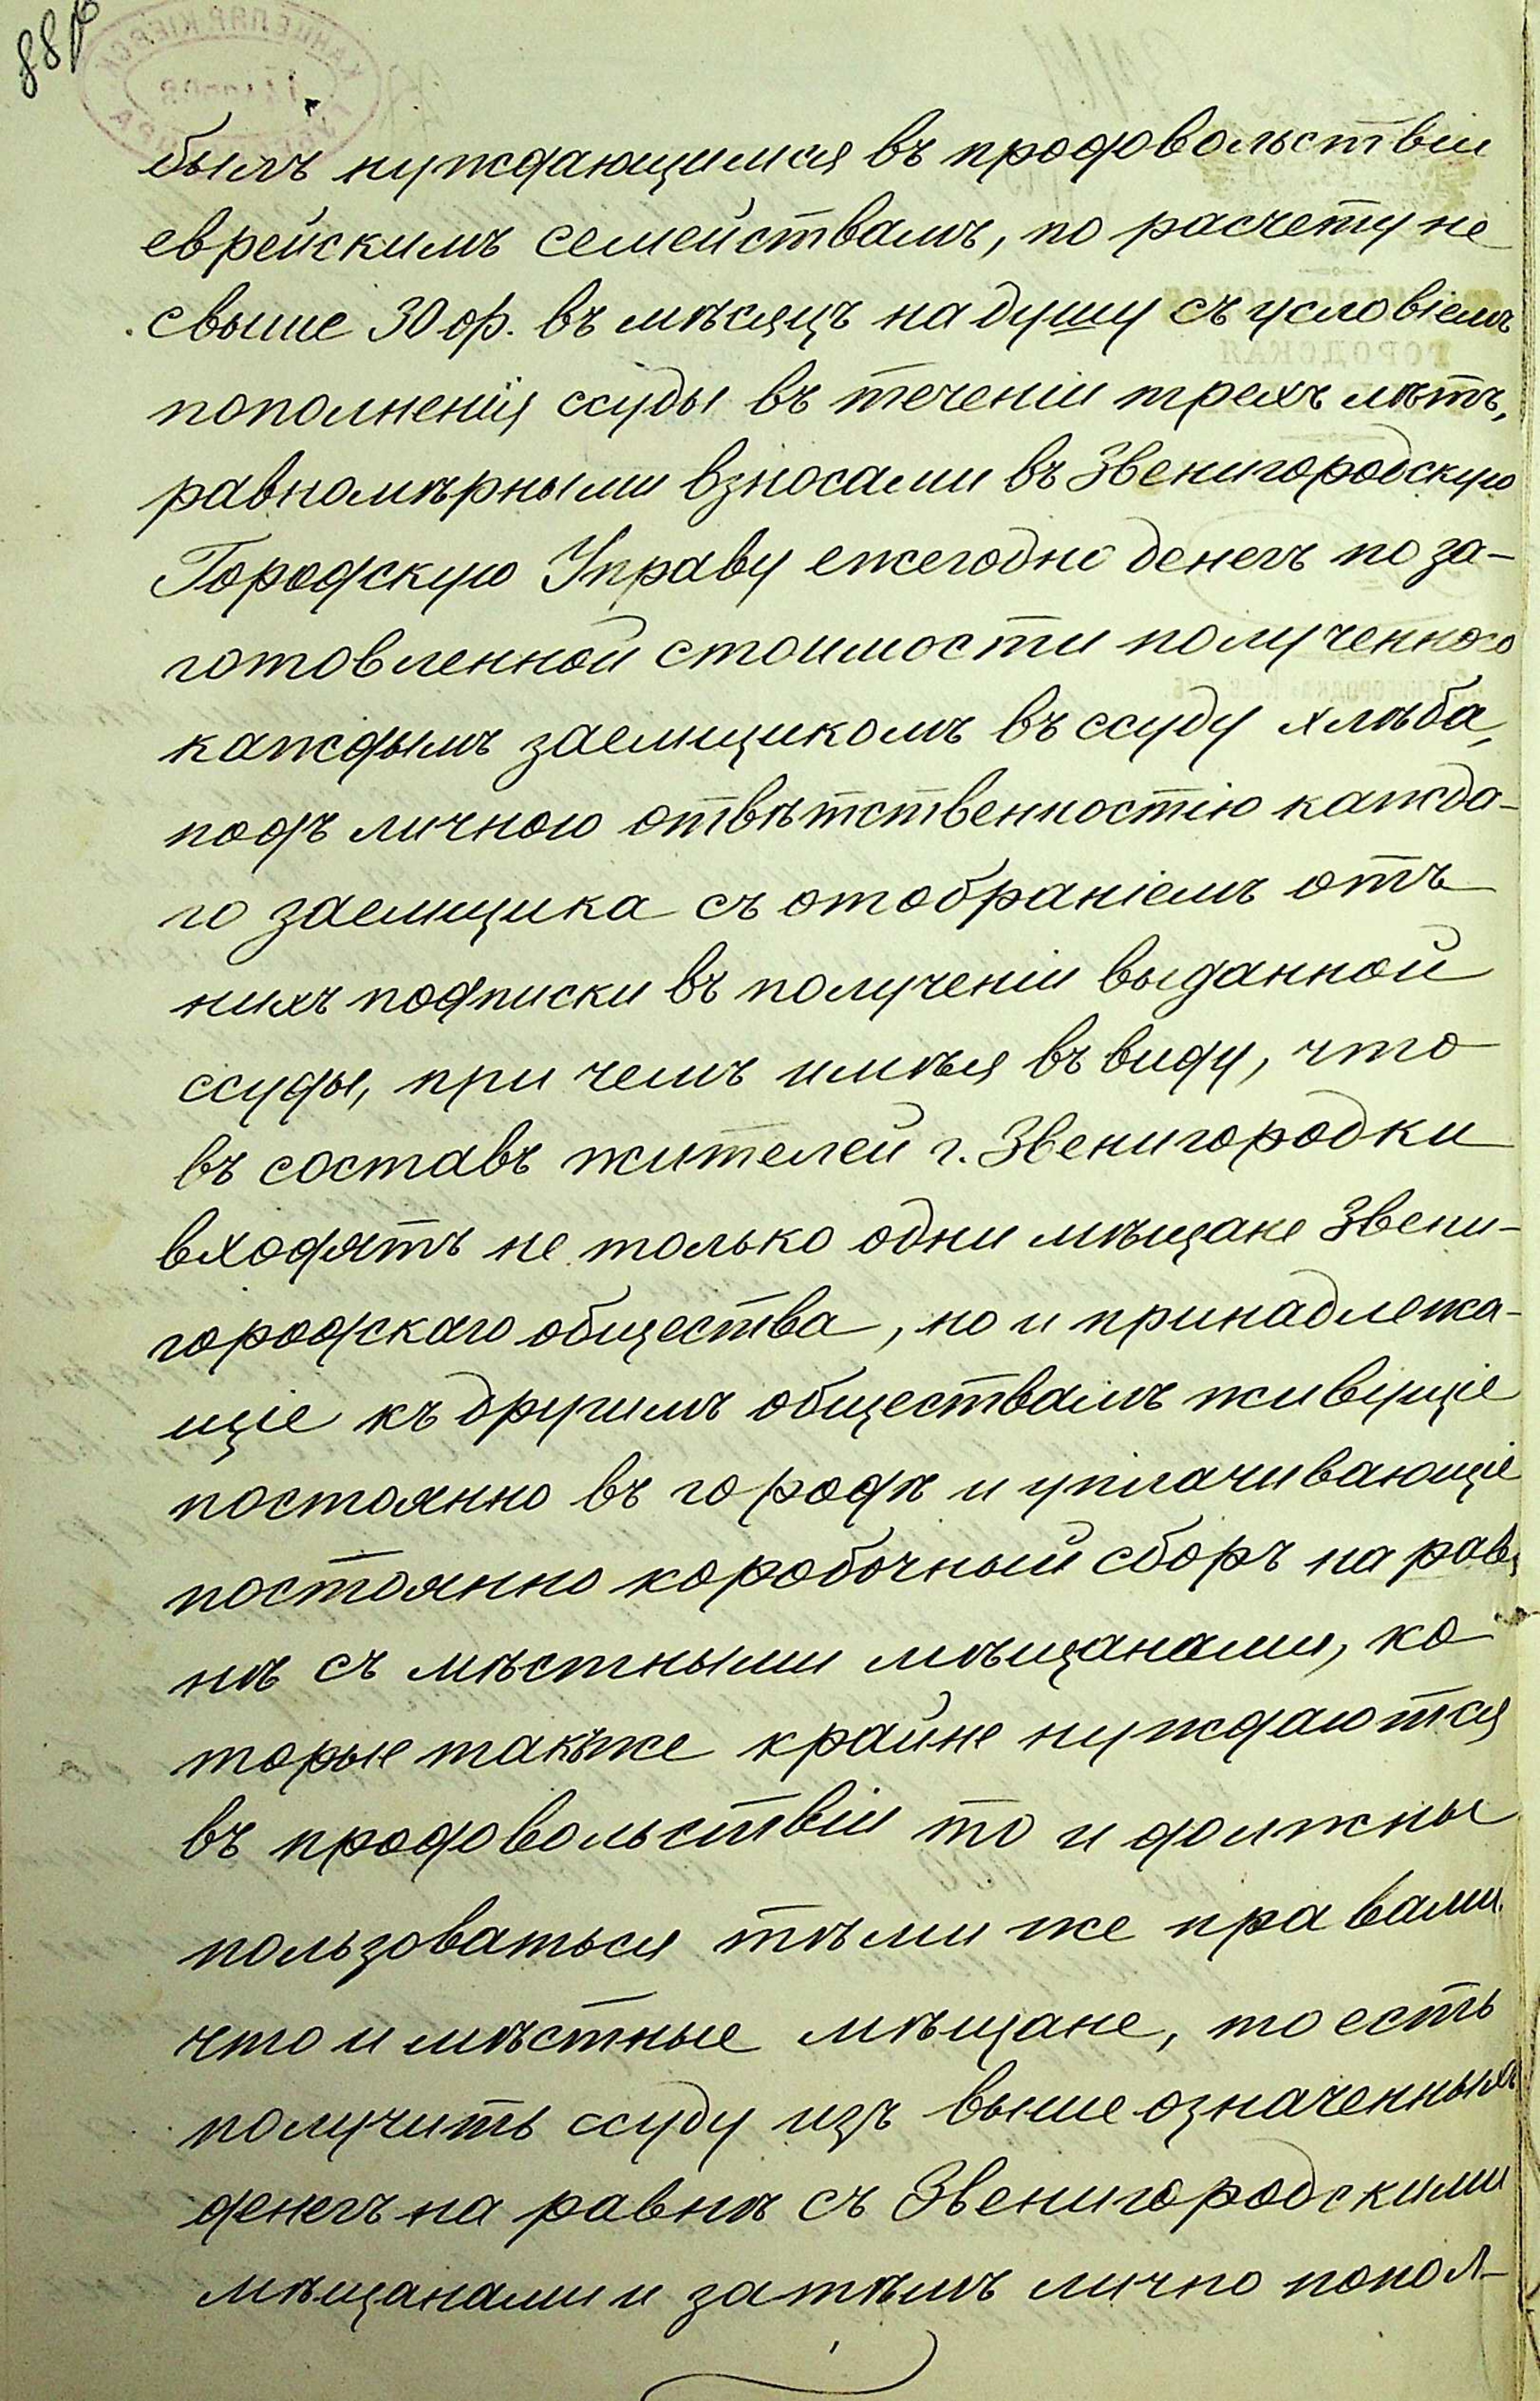 88
былъ нуждающимся въ продовольствіи
еврейскимъ семействамъ, по расчету не
свыше 30 ф. въ мѣсяцъ на душу съ условіемъ
пополненія ссуды въ теченіи трехъ лѣтъ,
равномѣрными взносами въ Звенигородскую
Городскую Управу ежегодно денегъ по за-
готовленной стоимости полученного
каждымъ заемщикомъ въ ссуду хлѣба,
подъ личною отвѣтственностію каждо-
го заемщика съ отобраніемъ отъ
нихъ подписки въ полученіи выданной
ссуды, при чемъ имѣя въ виду, что
въ составъ жителей г. Звенигородки
входятъ не только одни мѣщане Звени-
городскаго общества, но и принадлежа-
щіе къ другимъ обществамъ живущіе
постоянно въ городѣ и уплачивающіе
постоянно коробочный сборъ на рав-
нѣ съ мѣстными мѣщанами, ко
торые такъже крайне нуждаются
въ продовольствіи то и должны
пользоваться тѣми же правами
что и мѣстные мѣщане, то есть
получить ссуду изъ вышеозначенныхъ
денегъ на равнѣ съ Звенигородскими
мѣщанами и затѣмъ лично попол-